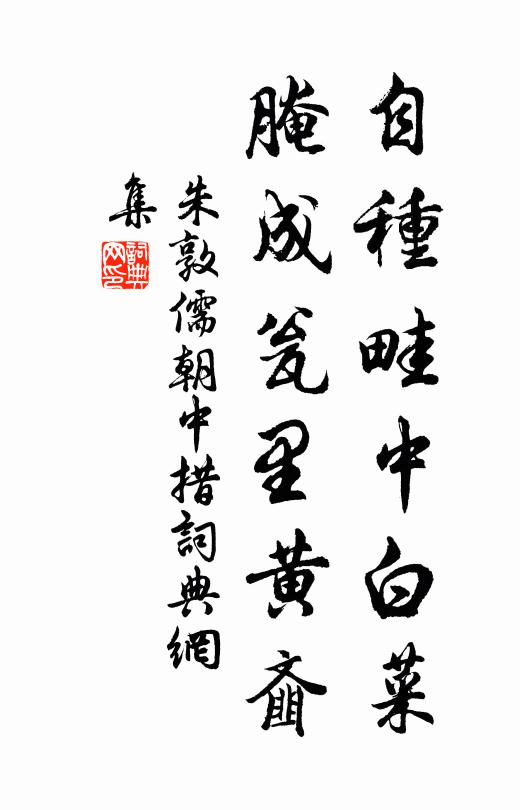 自種畦中白菜
腌成瓮里黄齑
朱敦儒朝中措詞典網
集
詞典
网印